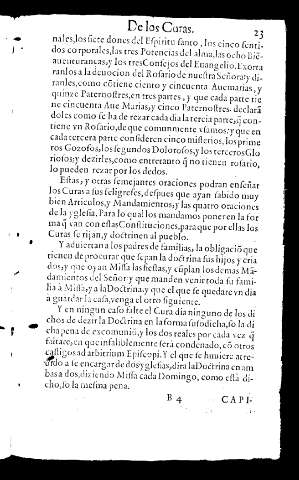 De los Curas. 23
nales, los siete dones del Espiritu santo, los cinco senti-
dos corporales, las tres Potencias del alma, las ocho Biẽ-
auenturanças, y los tres Consejos del Euangelio. Exorta
ranlos a la deuocion del Rosario de nuestra Señora y di-
ranles, como cõtiene ciento y cincuenta Auemarias, y
quinze Paternostres, en tres partes, y que cada parte tie
ne cincuenta Aue Marias, y cinco Paternostres declarã
doles como se ha de rezar cada dia la tercia parte, q̃ con-
tiene vn Rosario, de que comunmente vsamos, y que en
cada tercera parte consideren cinco misterios, los prime
ros Gozosos, los segundos Dolorosos, y los terceros Glo
riosos; y dezirles, como entretanto q̃ no tienen rosario,
lo pueden rezar por los dedos.
Estas, y otras semejantes oraciones podran enseñar
los Curas a sus feligreses, despues que ayan sabido muy
bien Articulos, y Mandamientos, y las quatro oraciones
de la yglesia. Para lo qual los mandamos poner en la for
ma q̃ van con estas Constituciones, para que por ellas los
Curas se rijan, y doctrinen al pueblo.
Y aduiertan a los padres de familias, la obligaciõ que
tienen de procurar que sepan la doctrina sus hijos y cria
dos, y que oyan Missa las fiestas, y cũplan los demas Mã-
damientos del Señor y que manden venir toda su fami-
lia à Missa, y a la Doctrina, y que el que se quedare vn dia
a guardar la casa, venga el otro siguiente.
Y en ningun caso falte el Cura dia ninguno de los di
chos de dezir la Doctrina en la forma susodicha, so la di
cha pena de excomuniõ, y los dos reales por cada vez q̃
faltare, en que infaliblemente será condenado, cõ otros
castigos ad arbitrium Episcopi. Y el que se huuiere atre-
uido a se encargar de dos yglesias, dira la Doctrina en am
bas a dos, diziendo Missa cada Domingo, como està di-
cho, so la mesma pena.
B 4 CAPI-